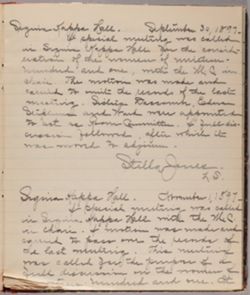 Sigma Kappa Hall. September 30, 1897.
A special meeting was called
in Sigma Kappa Hall for the consid-
eration of the women of nineteen-
hundred and one, with the M.C. in
chair. The motion was made and
carried to omit the records of the last
meeting. Sisters Bascomb, Edna
Stephens and Ward were appointed
to act as Room Committee. A full dis-
cussion followed, after which it
was moved to adjourn.
Stella Jones.
S.
Sigma Kappa Hall. 1897.
A special meeting was called
in Sigma Kappa Hall with the M.C.
in chair. A motion was made and
carried to pass over the records of
the last meeting. This meeting
was called for the purpose of a
full discussion on the women of
hundred and one.